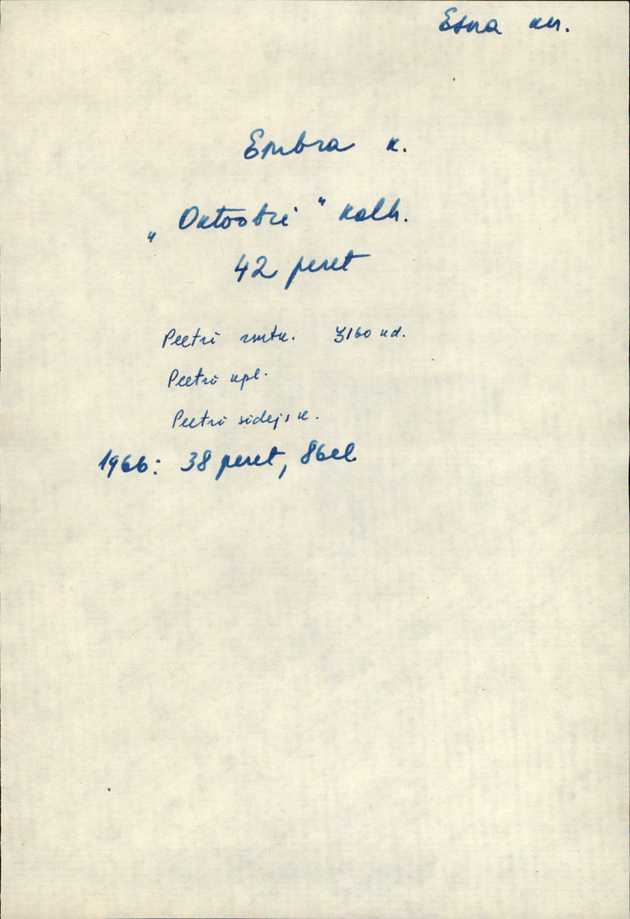 Esna kn.
Embra k.
„Oktoobri" kolh.
42 peret
Peetri rmtk. 3160 kd.
Peetri kpl.
Peetri sidejsk.
1966: 38 peret, 86 el